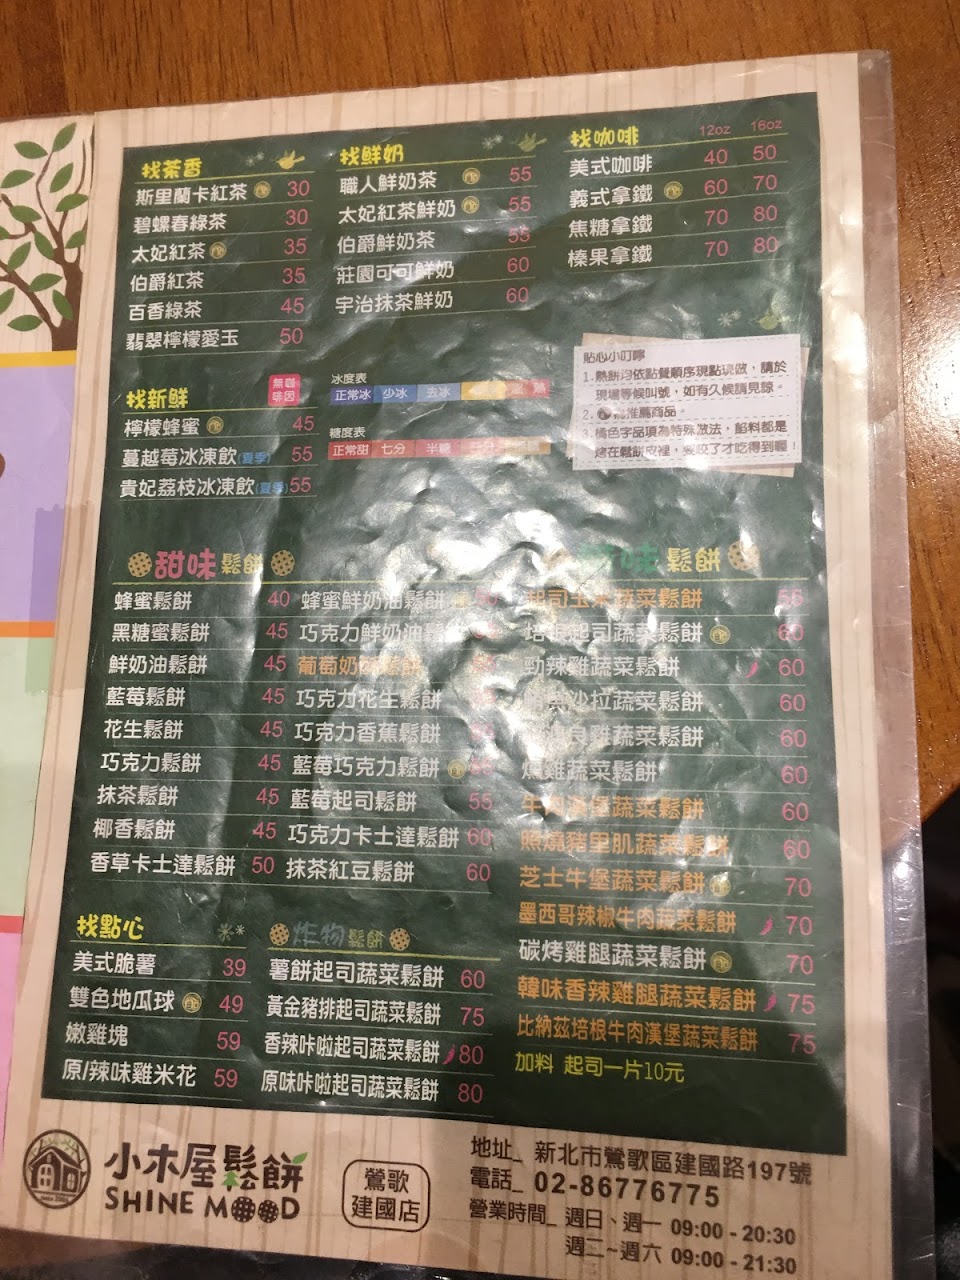 找茶香
斯里蘭卡紅茶 30
碧螺春綠茶 30
太妃紅茶 35
伯爵紅茶 35
百香綠茶 45
翡翠檸檬愛玉 50
找鮮奶
職人鮮奶茶 55
太妃紅茶鮮奶 55
伯爵鮮奶茶 55
莊園可可鮮奶 60
宇治抹茶鮮奶 60
找咖啡 12oz 16oz
美式咖啡 40 50
義式拿鐵 60 70
焦糖拿鐵 70 80
榛果拿鐵 70 80
找新鮮 無咖啡因
檸檬蜂蜜 45
蔓越莓冰凍飲(夏季) 55
貴妃荔枝冰凍飲(夏季) 55
冰度表
正常冰 少冰 去冰 熱
糖度表
正常甜 七分 半糖
貼心小叮嚀
1.熱餅均依點餐順序現點現做，請於
現場等候叫號，如有久候請見諒。
2. 為推薦商品。
3.橘色字品項為特殊做法，餡料都是
烤在鬆餅皮裡，要咬了才吃得到喔！
甜味鬆餅
蜂蜜鬆餅 40
黑糖蜜鬆餅 45
鮮奶油鬆餅 45
藍莓鬆餅 45
花生鬆餅 45
巧克力鬆餅 45
抹茶鬆餅 45
椰香鬆餅 45
香草卡士達鬆餅 50
蜂蜜鮮奶油鬆餅
巧克力鮮奶油鬆
葡萄奶 鬆餅
巧克力花生鬆餅
巧克力香蕉鬆餅
藍莓巧克力鬆餅
藍莓起司鬆餅 55
巧克力卡士達鬆餅 60
抹茶紅豆鬆餅 60
味鬆餅
起司玉米蔬菜鬆餅 55
培根起司蔬菜鬆餅 60
勁辣雞蔬菜鬆餅 60
沙拉蔬菜鬆餅 60
良雞蔬菜鬆餅 60
燻雞蔬菜鬆餅 60
牛肉漢堡蔬菜鬆餅 60
照燒豬里肌蔬菜鬆餅 60
芝士牛堡蔬菜鬆餅 70
墨西哥辣椒牛肉蔬菜鬆餅 70
碳烤雞腿蔬菜鬆餅 70
韓味香辣雞腿蔬菜鬆餅 75
比納茲培根牛肉漢堡蔬菜鬆餅 75
加料 起司一片10元
找點心
美式脆薯 39
雙色地瓜球 49
嫩雞塊 59
原/辣味雞米花 59
炸物鬆餅
薯餅起司蔬菜鬆餅 60
黃金豬排起司蔬菜鬆餅 75
香辣咔啦起司蔬菜鬆餅 80
原味咔啦起司蔬菜鬆餅 80
小木屋鬆餅
SHINE MOOD
鶯歌
建國店
地址_ 新北市鶯歌區建國路197號
電話_ 02-86776775
營業時間_ 週日、週一 09:00 - 20:30
週二~週六 09:00 - 21:30